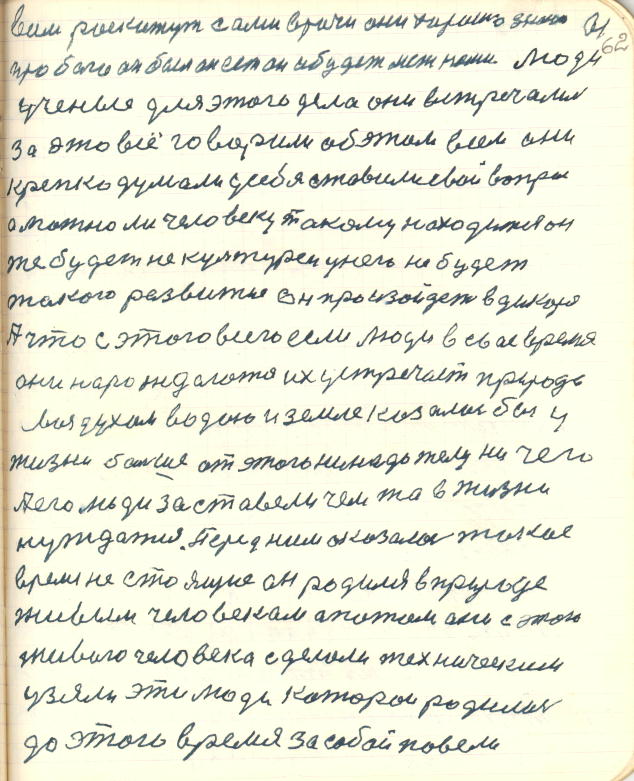 вам роскажут сами врачи они хорошо знают 31
про бога он был он есть он и будет меж нами. Люди 62
ученые для этого дела они встречались
За это всё говорили об этом всем они
крепко думали у себя ставили свой вопрос
а можно ли человеку такому находится он
же будет не культурен у него не будет
такого развитие он произойдет в дикого
А что с этого всего если люди в свае время
они нарождаются их устречает природа
воздухом водою и земле казалось бы у
жизни больше от этого ненадо телу ни чего
А его люди заставели чем та в жизни
нуждатия. Перед ним оказалось такое
время не стоящие он родился в природе
живым человеком а потом они с этого
живого человека сделали техническим
узяли эти люди которои родились
до этого время за собой повели